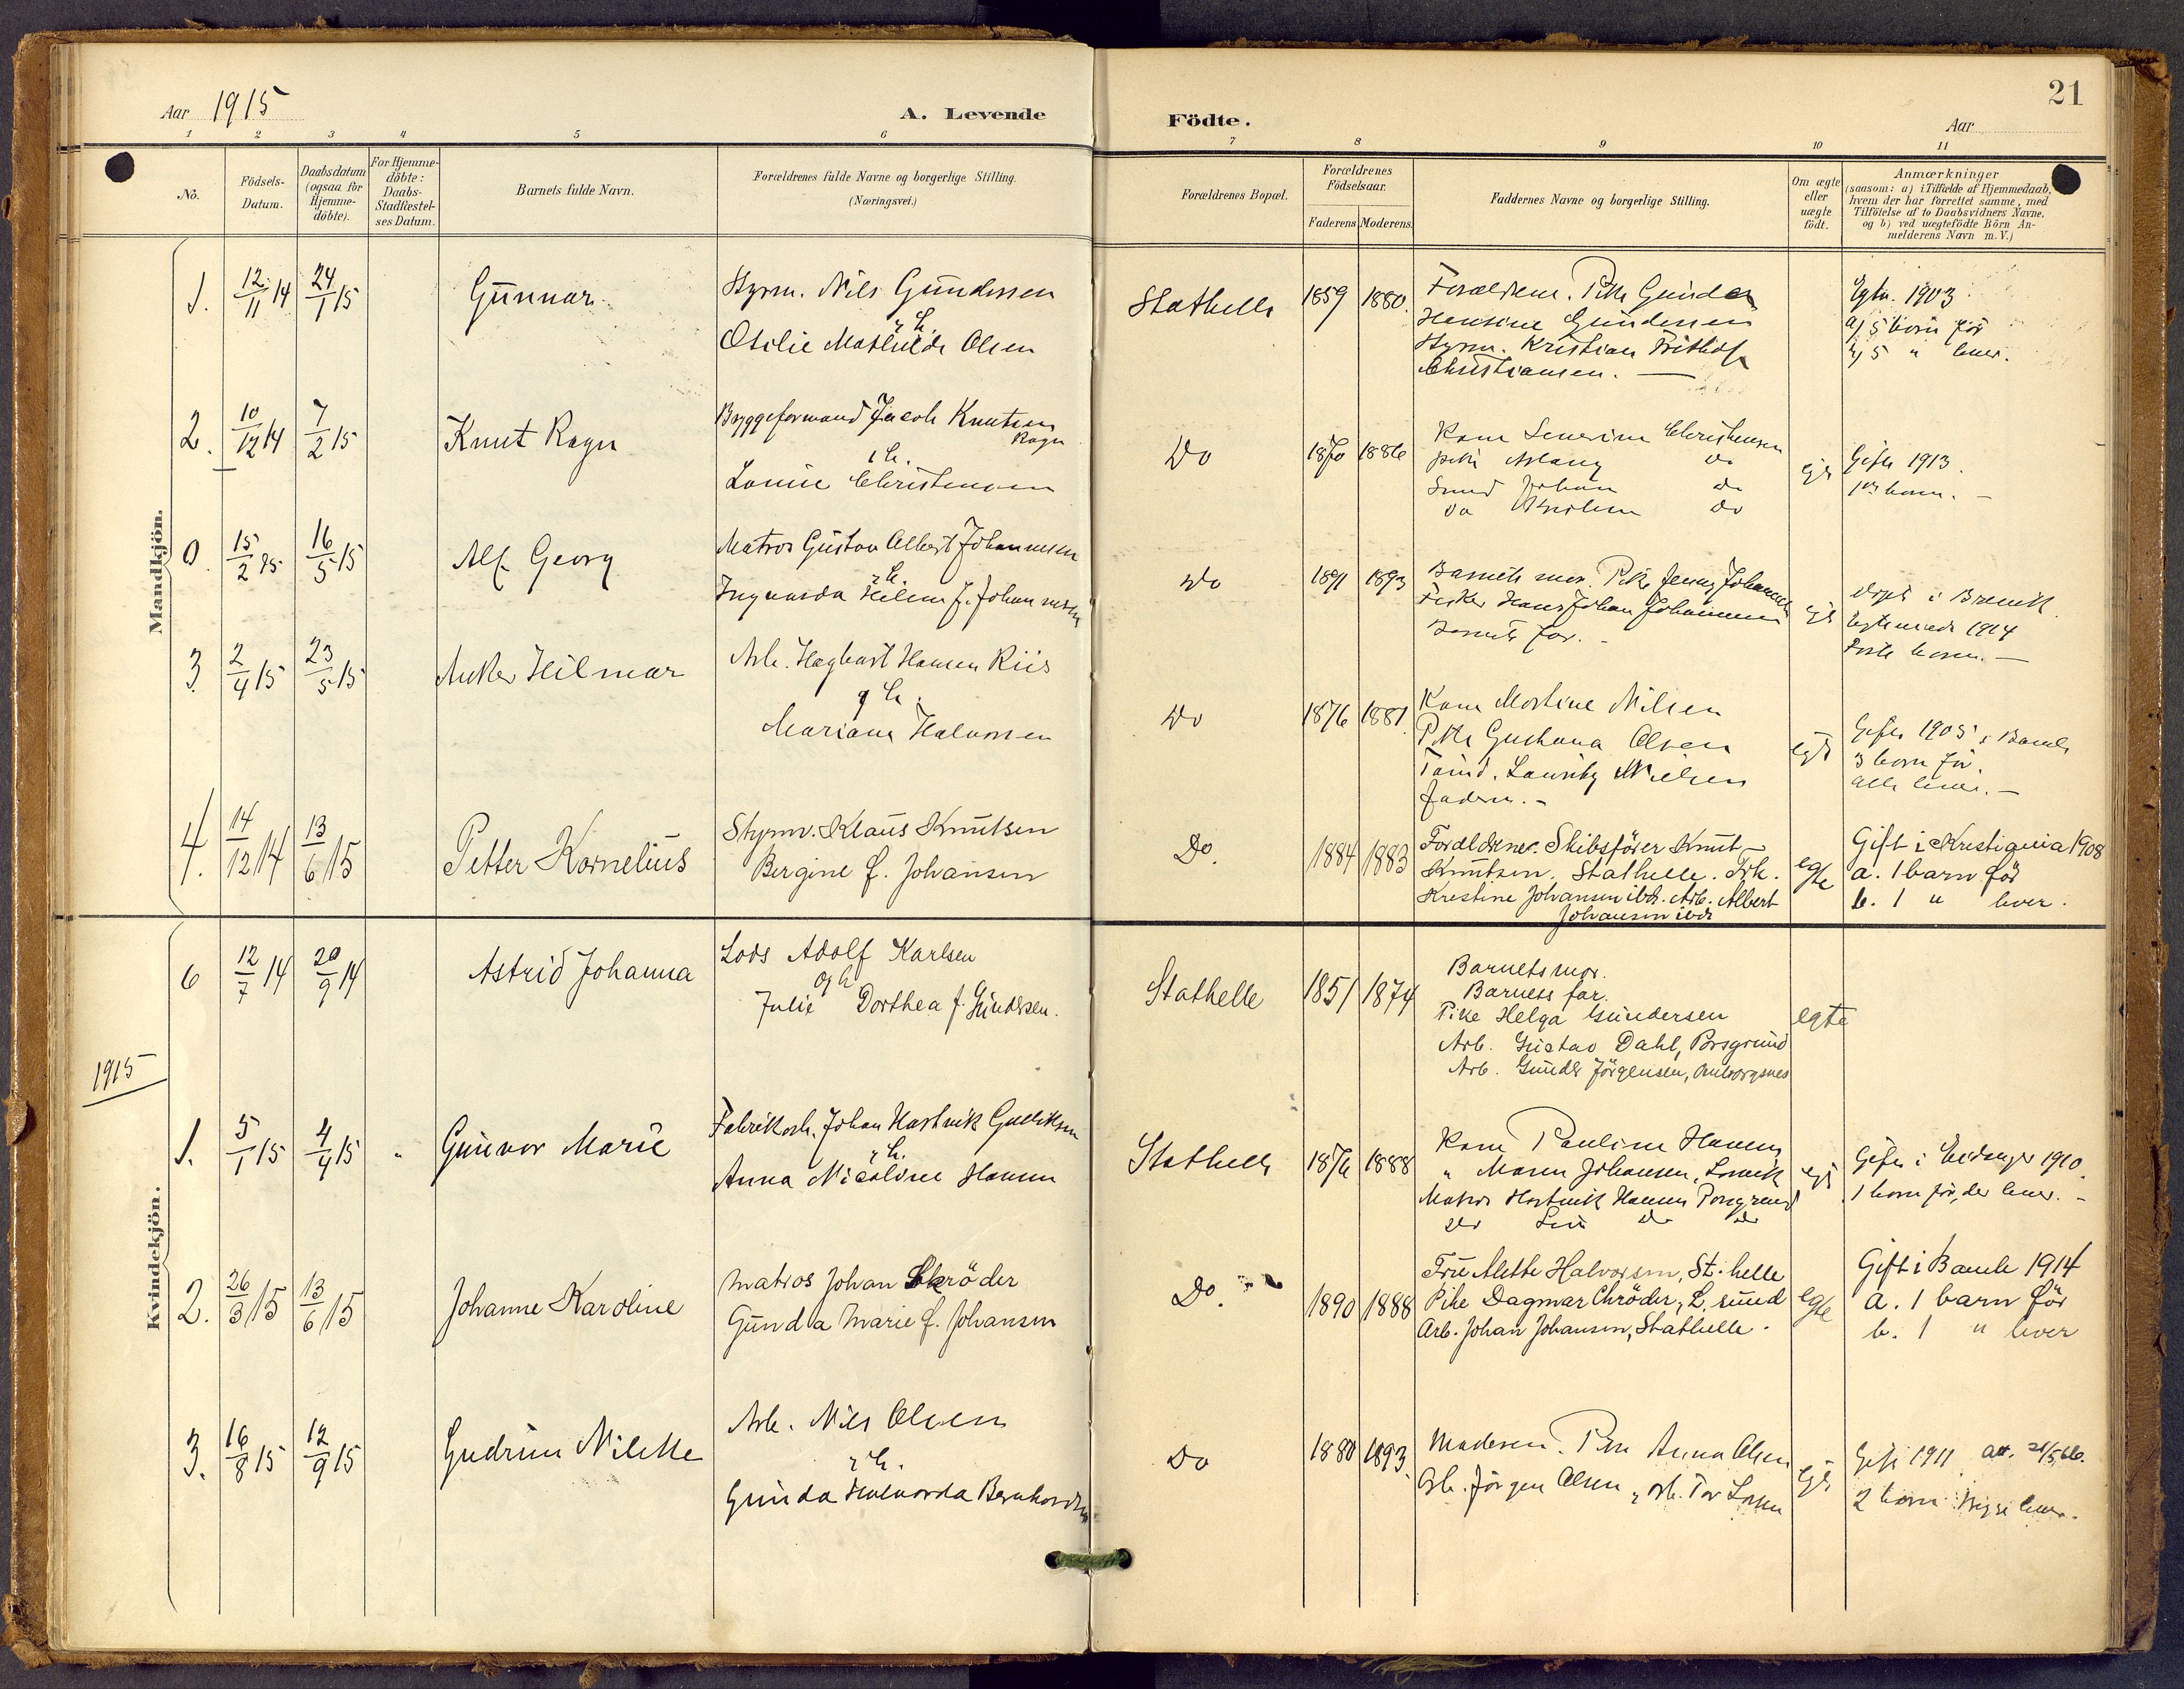 21
Aar 1915
A. Levende
Födte.
Aar
1 2 3 4 5 6 7 8 9 10 11
No.
Födsels-
Datum.
Daabsdatum
(ogsaa for
Hjemme-
döbte).
For Hjemme-
döbte:
Daabs-
Stadfæstel-
ses Datum.
Barnets fulde Navn.
Forældrenes fulde Navne og borgerlige Stilling.
(Næringsvei.)
Forældrenes Bopæl.
Forældrenes
Födselsaar.
Faderens Moderens
Faddernes Navne og borgerlige Stilling.
Om ægte
eller
uægte
födt.
Anmærkninger
(saasom: a) i Tilfælde af Hjemmedaab,
hvem der har forrettet samme, med
Tilföielse af to Daabsvidners Navne,
og b) ved uægtefödte Börn An-
melderens Navn m. V.)
Mandkjön.
1. 12/11 14 24/1 15 Gunnar
Styrm. Nils Gundersen
og h.
Otilie Mathilde Olsen
Stathelle 1859 1880.
Forældrene. Pike Gunda
Hansine Gundersen
Styrm. Kristian Frithjof
Christiansen. —
Egtv. 1903
a) 5 born för
b) 5 " lever.
2. 10/12 14 7/2 15 Knut Ragn
Bryggeformand Jacob Knutsen
Ragn
og h.
Louise Christensen
Do 1870 1886
Kone Severine Christensen
pike Aslaug do
Smed Johan do
do do
egte
Gift 1913.
1ste barn. —
0. 15/2 15 16/5 15 Alf Georg
Matros Gustav Albert Johannesen
og h.
Ingvarda Helene f. Johannesen
Do 1891 1893
Barnets mor. Pike Jenny Johannesen
Fisker Hans Johan Johannesen
Barnets far. -
egte
döpt i Brevik
Egteviede 1914
Förste barn. —
3. 2/4 15 23/5 15 Anker Hilmar
Arb. Hagbart Hansen Riis
og h.
Mariane Halvorsen
Do 1876 1881.
Kone Mortine Nilsen
Pike Gustava Olsen
Tömd. Lauritz Nielsen
faderen. -
egte
Gift 1905 i Bamle
3 born för.
alle lever. —
4. 14/12 14 13/6 15 Petter Kornelius
Styrm. Klaus Knutsen
Bergine f. Johansen
Do. 1884 1883
Forældrene. Skibsförer Knut
Knutsen, Stathelle. Frk.
Kristine Johansen ibd. Arb. Albert
Johansen ibd
egte
Gift i Kristiania 1908
a. 1 barn för
b. 1 " lever.
Kvindekjön.
6 12/7 14 20/9 14 Astrid Johanna
Lods Adolf Karlsen
og h
Julie Dorthea f. Gundersen.
Stathelle 1851 1874
Barnets mor.
Barnets far.
Pike Helga Gundersen
Arb. Gustav Dahl, Porsgrund
Arb. Gunder Jörgensen,
egte
1915
1. 5/1 15 4/4 15 " Gunvor Marie
Fabrikarb. Johan Hartvik Gulliksen
og h.
Anna Nicoline Hansen
Stathelle 1876 1888
Kone Pauline Hansen
" Maren Johansen,
Matros Hartvik Hansen Porsgrund
do do do
egte
Gift i Eidanger 1910
1 barn för, der lever. -
2. 26/3 15 13/6 15 Johanne Karoline
Matros Johan Schröder
Gunda Marie f. Johansen
Do. 1890 1888
Fru Alette Halvorsen, St.helle
Pike Dagmar Chröder, L. sund
Arb. Johan Johansen, Stathelle.
egte
Gift i Bamle 1914
a. 1 barn för
b. 1 " lever
3. 16/8 15 12/9 15 Gudrun Nilette
Arb. Nils Olsen
og h.
Gunda Halvorda Bernhardsen
Do 1880 1893.
Moderen. Pike Anna Olsen
Arb. Jörgen Olsen, arb. Tor
egte
Gift 1911 att. 21/5 66.
2 born begge lever.